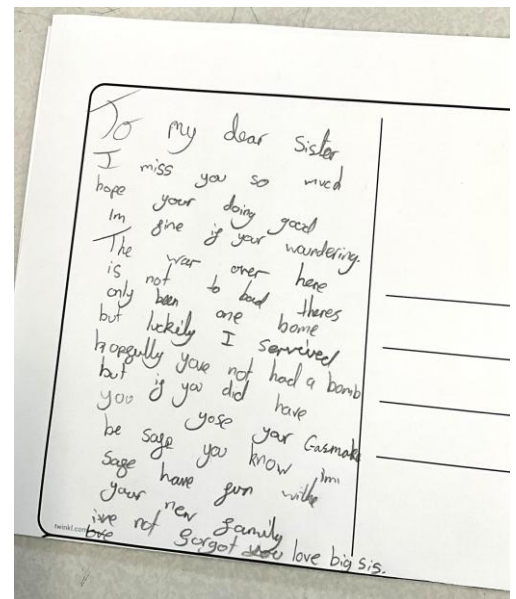 To my dear Sister
I miss you so mucd
hope your doing good
Im fine if your woundering.
The war over here
is not to bad theres
only been one bome
but luckily I servived
hopefully youe not had a bomb
but if you did have
you yose your Gasmake
be safe you know im
safe have fun withe
your new family
ive not forgot you love big sis.
twinkl.com